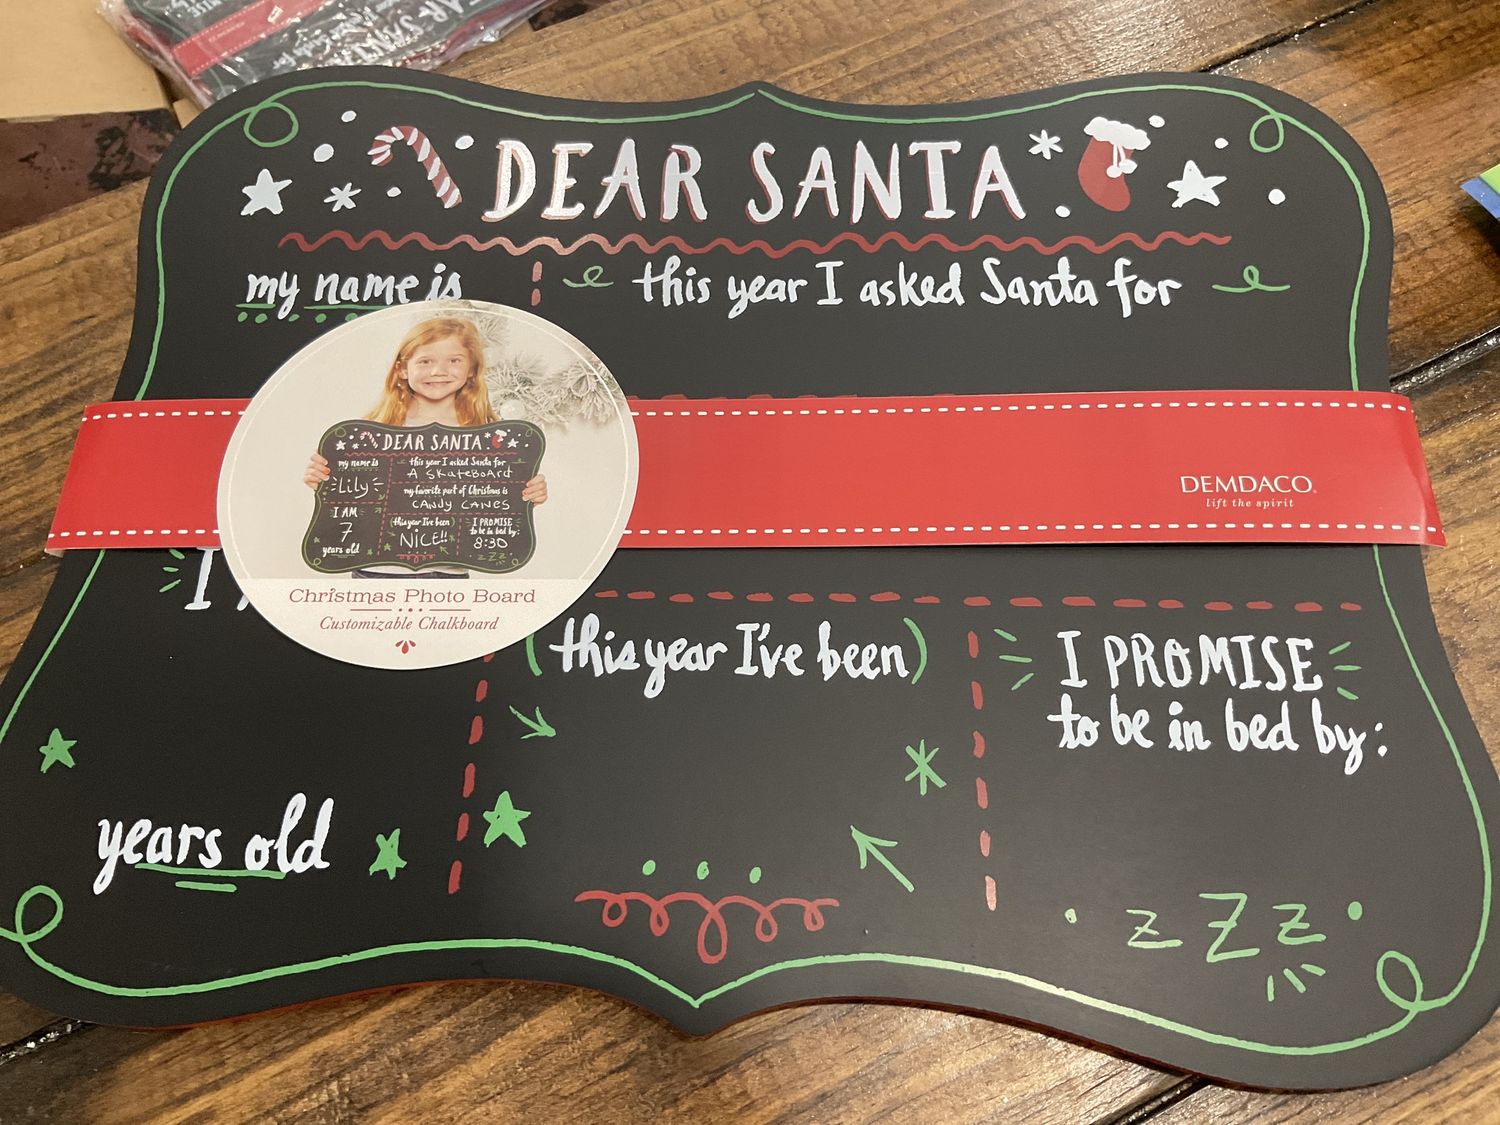 DEAR SANTA
my name is
this year I asked Santa for
DEMDACO
lift the spirit
DEAR SANTA
my name is
Lily
I AM
7
years old
this year I asked Santa for
A SKateBoARd
my favorite part of Christmas is
CANDY CANES
(this year I've been)
NICE!!
I PROMISE
to be in bed by:
8:30
zZz
Christmas Photo Board
Customizable Chalkboard
I
(this year I've been)
I PROMISE
to be in bed by:
years old
zZz